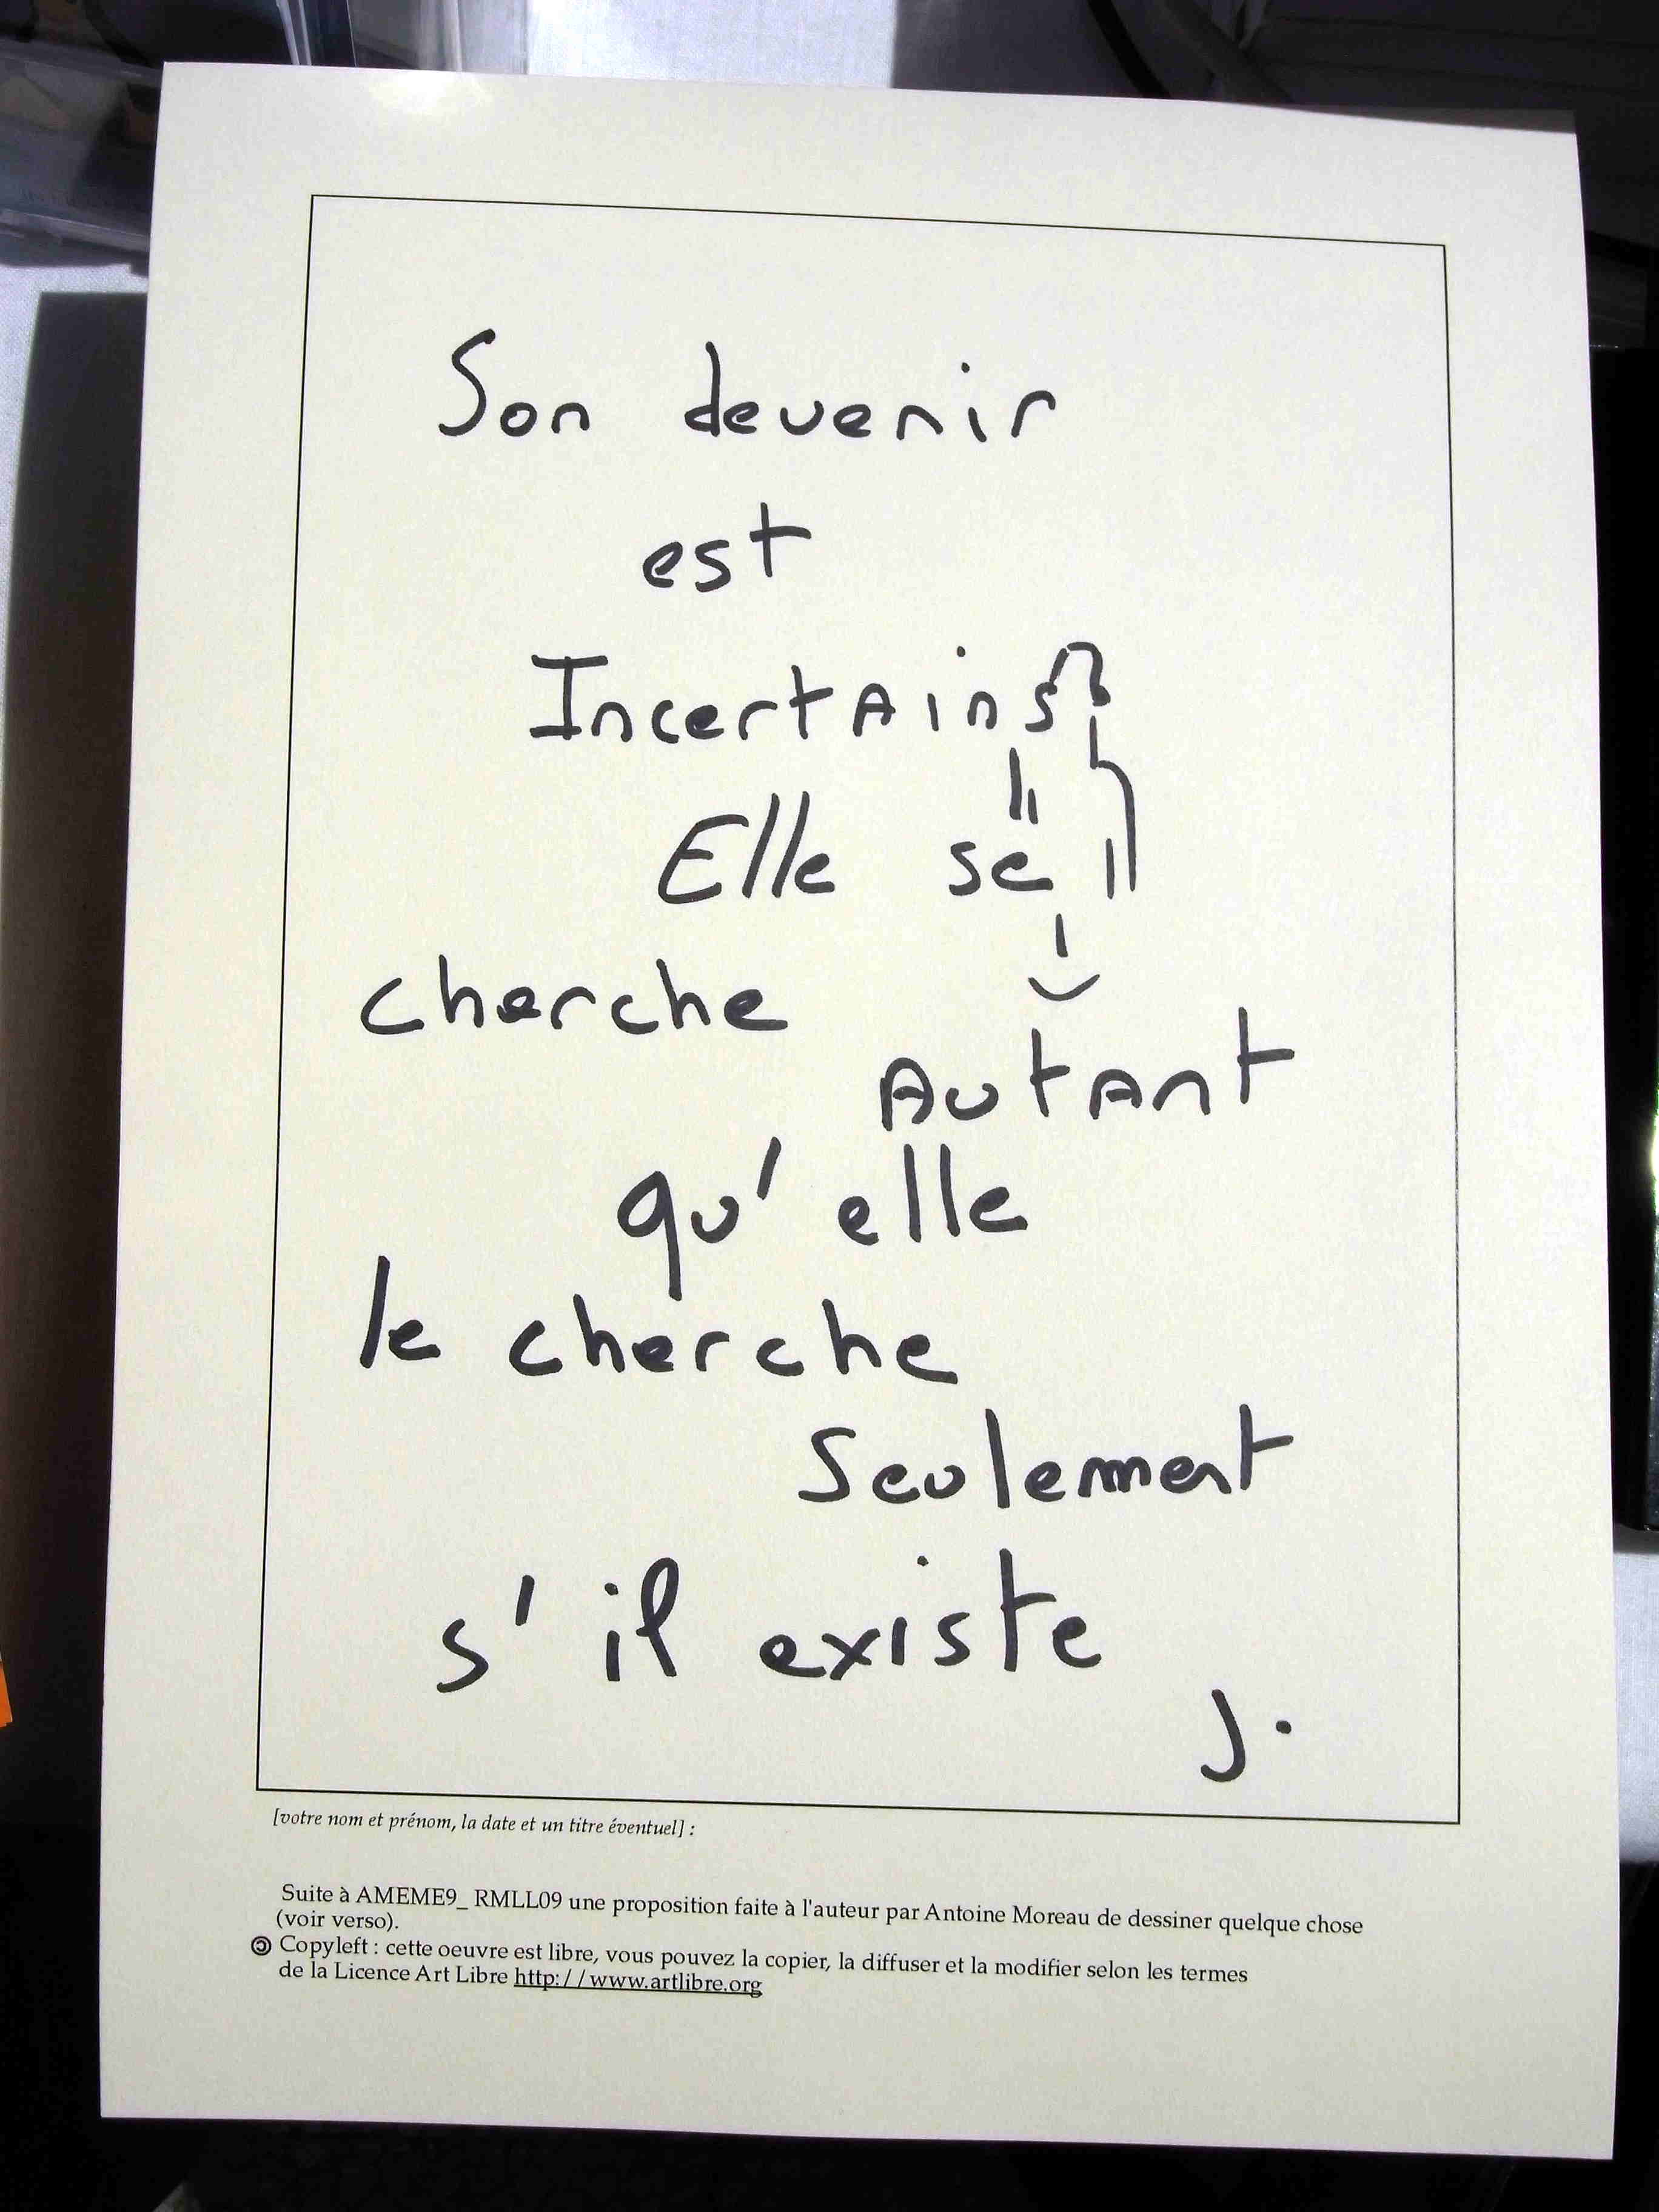 Son devenir
est
Incertains
Elle se
cherche
Autant
qu'elle
le cherche
Seulement
s'il existe
J.
[votre nom et prénom, la date et un titre éventuel] :
Suite à AMEME9_ RMLL09 une proposition faite à l'auteur par Antoine Moreau de dessiner quelque chose
(voir verso).
🄯 Copyleft : cette oeuvre est libre, vous pouvez la copier, la diffuser et la modifier selon les termes
de la Licence Art Libre http://www.artlibre.org